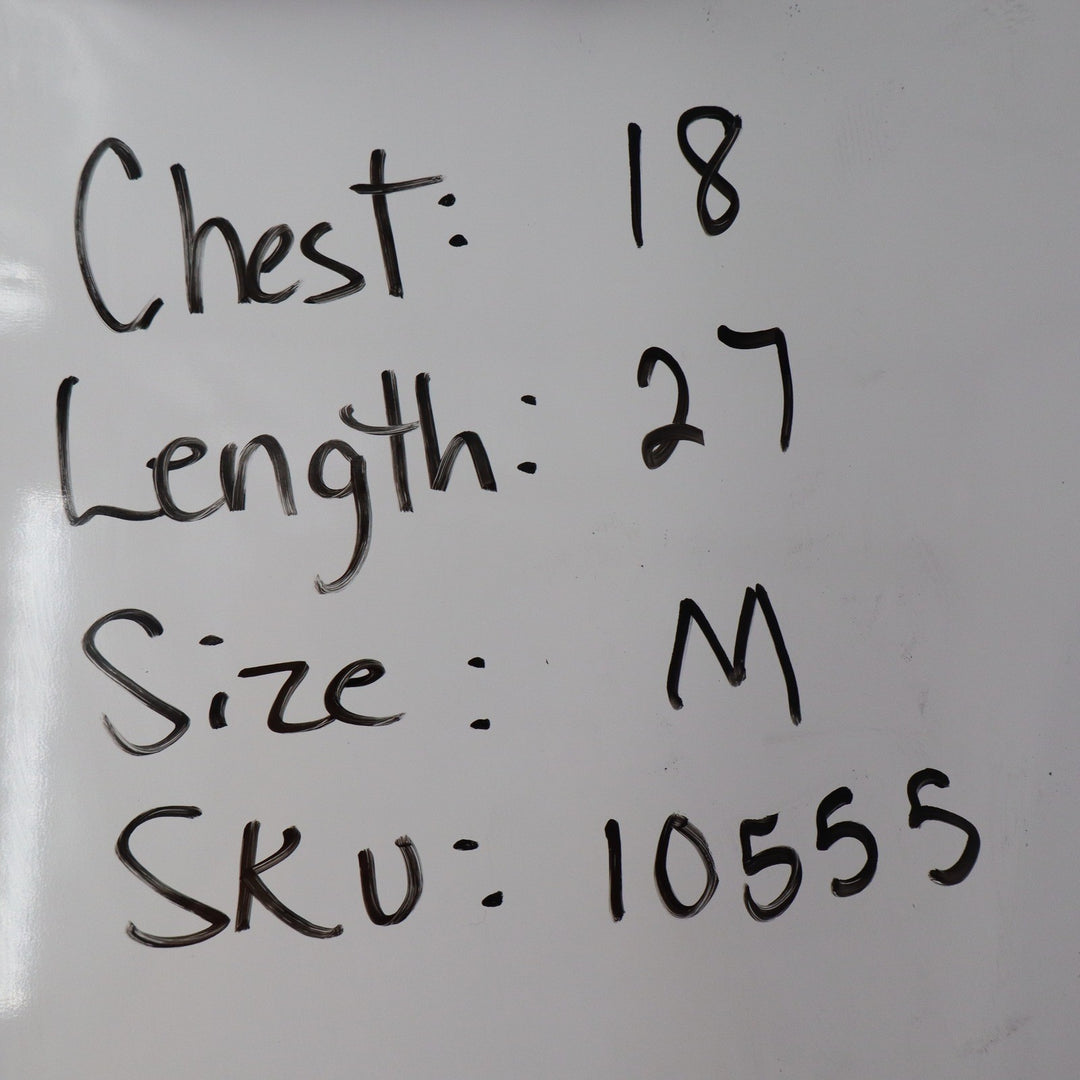 Chest: 18
Length: 27
Size: M
SKU: 10555